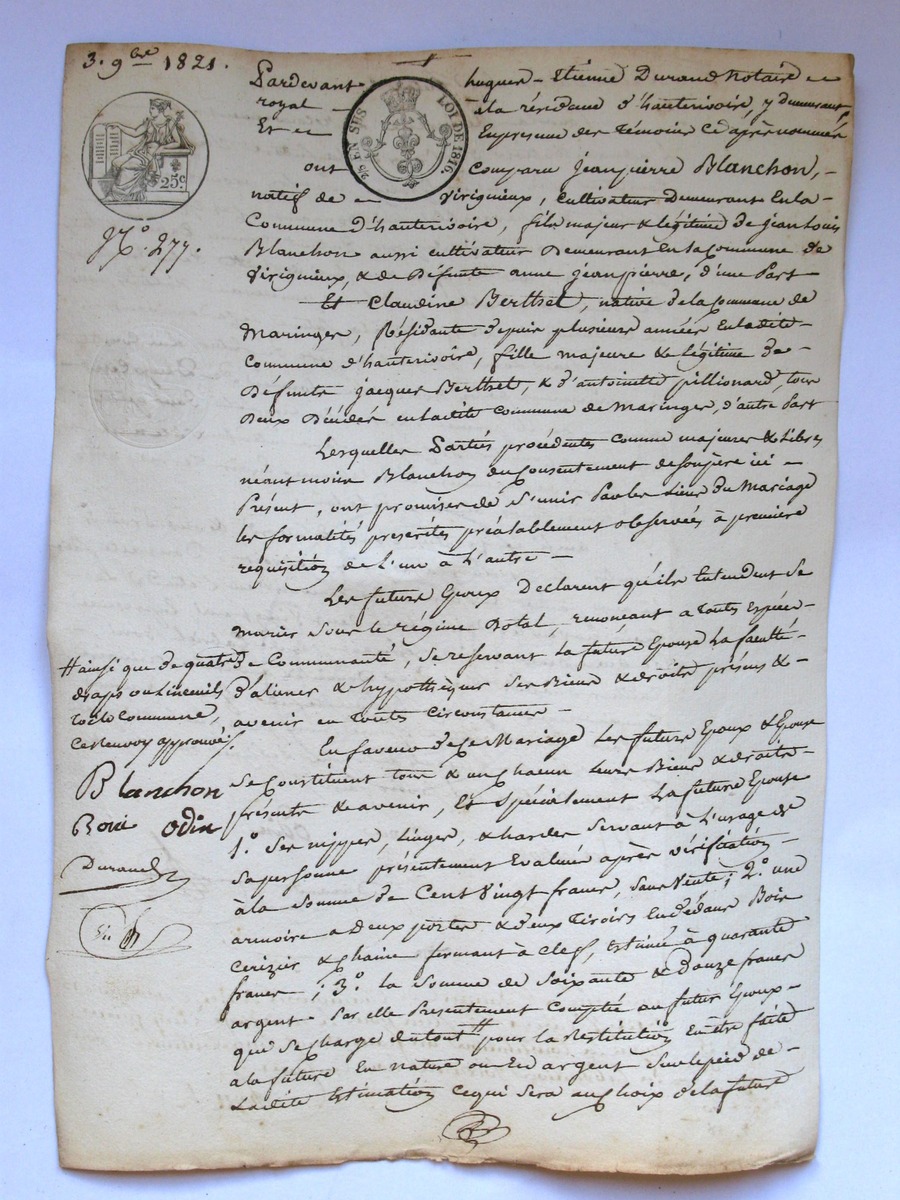 3. 9bre 1821.
Pardevant hugues - Etienne Durand Notaire
royal à la résidence d'hauterivoire, y demeurant,
Et En présence des témoins Ci après nommés
25 EN SUS LOI DE 1816
25c
No. 277.
ont Comparu jeanpierre Blanchon,
natif de Virigneux, Cultivateur Demeurant En la
Commune d'hauterivoire, fils majeur & légitime de jean Louis
Blanchon aussi cultivateur Demeurant En la Commune de
Virignieux, & de Défunte anne jeanpierre, d'une Part
Et Claudine Berthet, native de la Commune de
Maringes, Résidante depuis plusieurs années En la dite
Commune d'hauterivoire, fille majeure & légitime de
Défunts jacques Berthet, & d'antoinette pillionard, tous
Deux Décédés en la dite Commune de Maringes, d'autre Part
Lesquelles Parties procédentes comme majeures & Libres
néantmoins Blanchon du Consentement de son père ici
Présent, ont promis de s'unir Par les Liens du Mariage
les formalités prescrites préalablement observées à première
requisition de L'un à L'autre
Les futurs Epoux Declarent qu'ils Entendent Se
Marier Sous le régime Dotal, renonçant à toutes Espèces
de Communauté, Se reservant La future Epouse La faculté
d'aliener & hypothèquer Ses Biens & droits présens &
avenir en toutes Circonstances
En faveur de Ce Mariage Les futurs Epoux & Epouse
Se Constituent tous & un Chacun Leurs Biens & droits
présents & avenir, Et Spécialement La future Epouse
1.o Ses nippes, Linges, & hardes Servant à L'usage de
Sa personne présentement Evalués après vérification
à la Somme de Cent Vingt francs, Sans Vente; 2.o une
armoire a deux portes & deux tiroirs En dedans Bois
Cerizier & chaine fermant à clef, Estimée à quarante
francs; 3.o La Somme de Soixante & Douze francs
argent Par elle Présentement Comptée au futur Epoux
qui Se charge du tout # pour la Restitution En être faite
a la future En nature ou En argent Sur le pied de
La dite Estimation Ce qui Sera au Choix de la future
# ainsi que de quatre
draps ou Linceuils
toile Commune,
Ce renvoy approuvé.
Blanchon
Odin
Durand